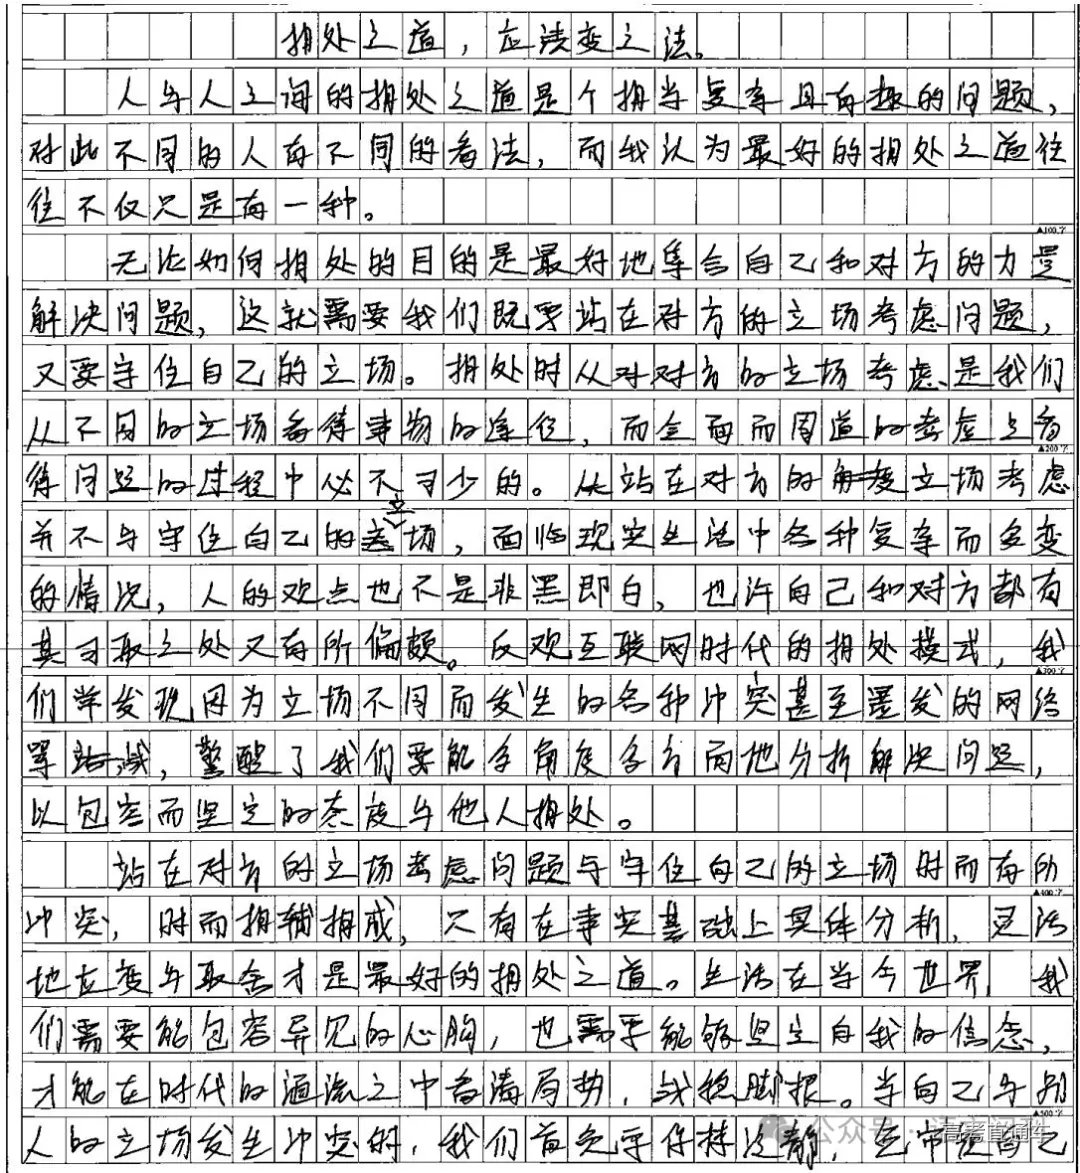 相处之道，应读变之法。
人与人之间的相处之道是个相当复杂且有趣的问题，
对此不同的人有不同的看法，而我认为最好的相处之道往
往不仅只是有一种。
▲100字
无论如何相处的目的是最好地集合自己和对方的力量
解决问题，这就需要我们既要站在对方的立场考虑问题，
又要守住自己的立场。相处时从对对方的立场考虑是我们
从不同的立场看待事物的途径，而全面而周道的考虑是看
▲200字
待问题的过程中必不可少的。从站在对方的角度立场考虑
并不与守住自己的立场，面临现实生活中各种复杂而多变
的情况，人的观点也不是非黑即白，也许自己和对方都有
其可取之处又有所偏颇。反观互联网时代的相处模式，我
▲300字
们常发现因为立场不同而发生的各种冲突甚至爆发的网络
骂战，警醒了我们要能多角度多方面地分析解决问题，
以包容而坚定的态度与他人相处。
站在对方的立场考虑问题与守住自己的立场时而有所
▲400字
冲突，时而相辅相成，只有在事实基础上具体分析，灵活
地应变与取舍才是最好的相处之道。生活在当今世界，我
们需要能包容异见的心胸，也需要能够坚定自我的信念，
才能在时代的湍流之中看清局势，战稳脚根。当自己与别
▲500字
人的立场发生冲突时，我们首先守保持冷静，在审视自己
公众号·语案直通车